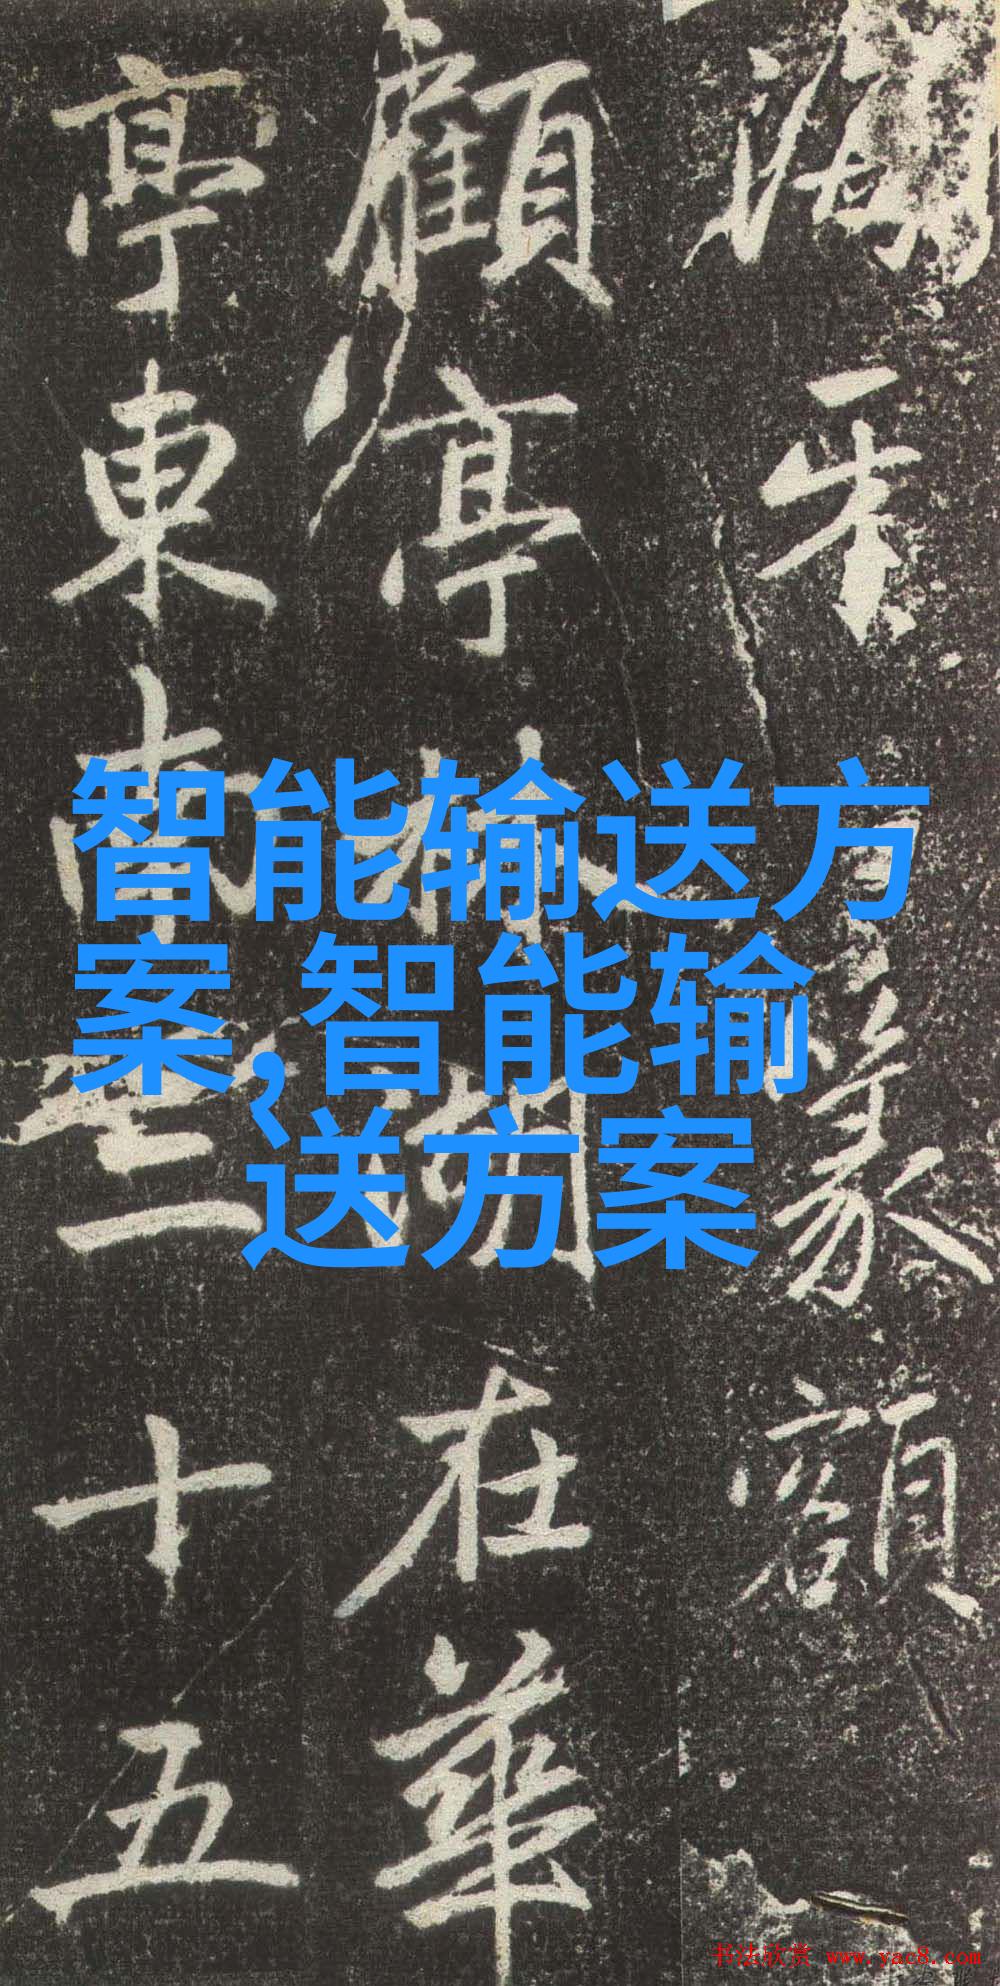 智能输送方
案,智能输
送方案
篆額
顧亭林湖在華
亭東南三十五
书法欣赏 www.yac8.com